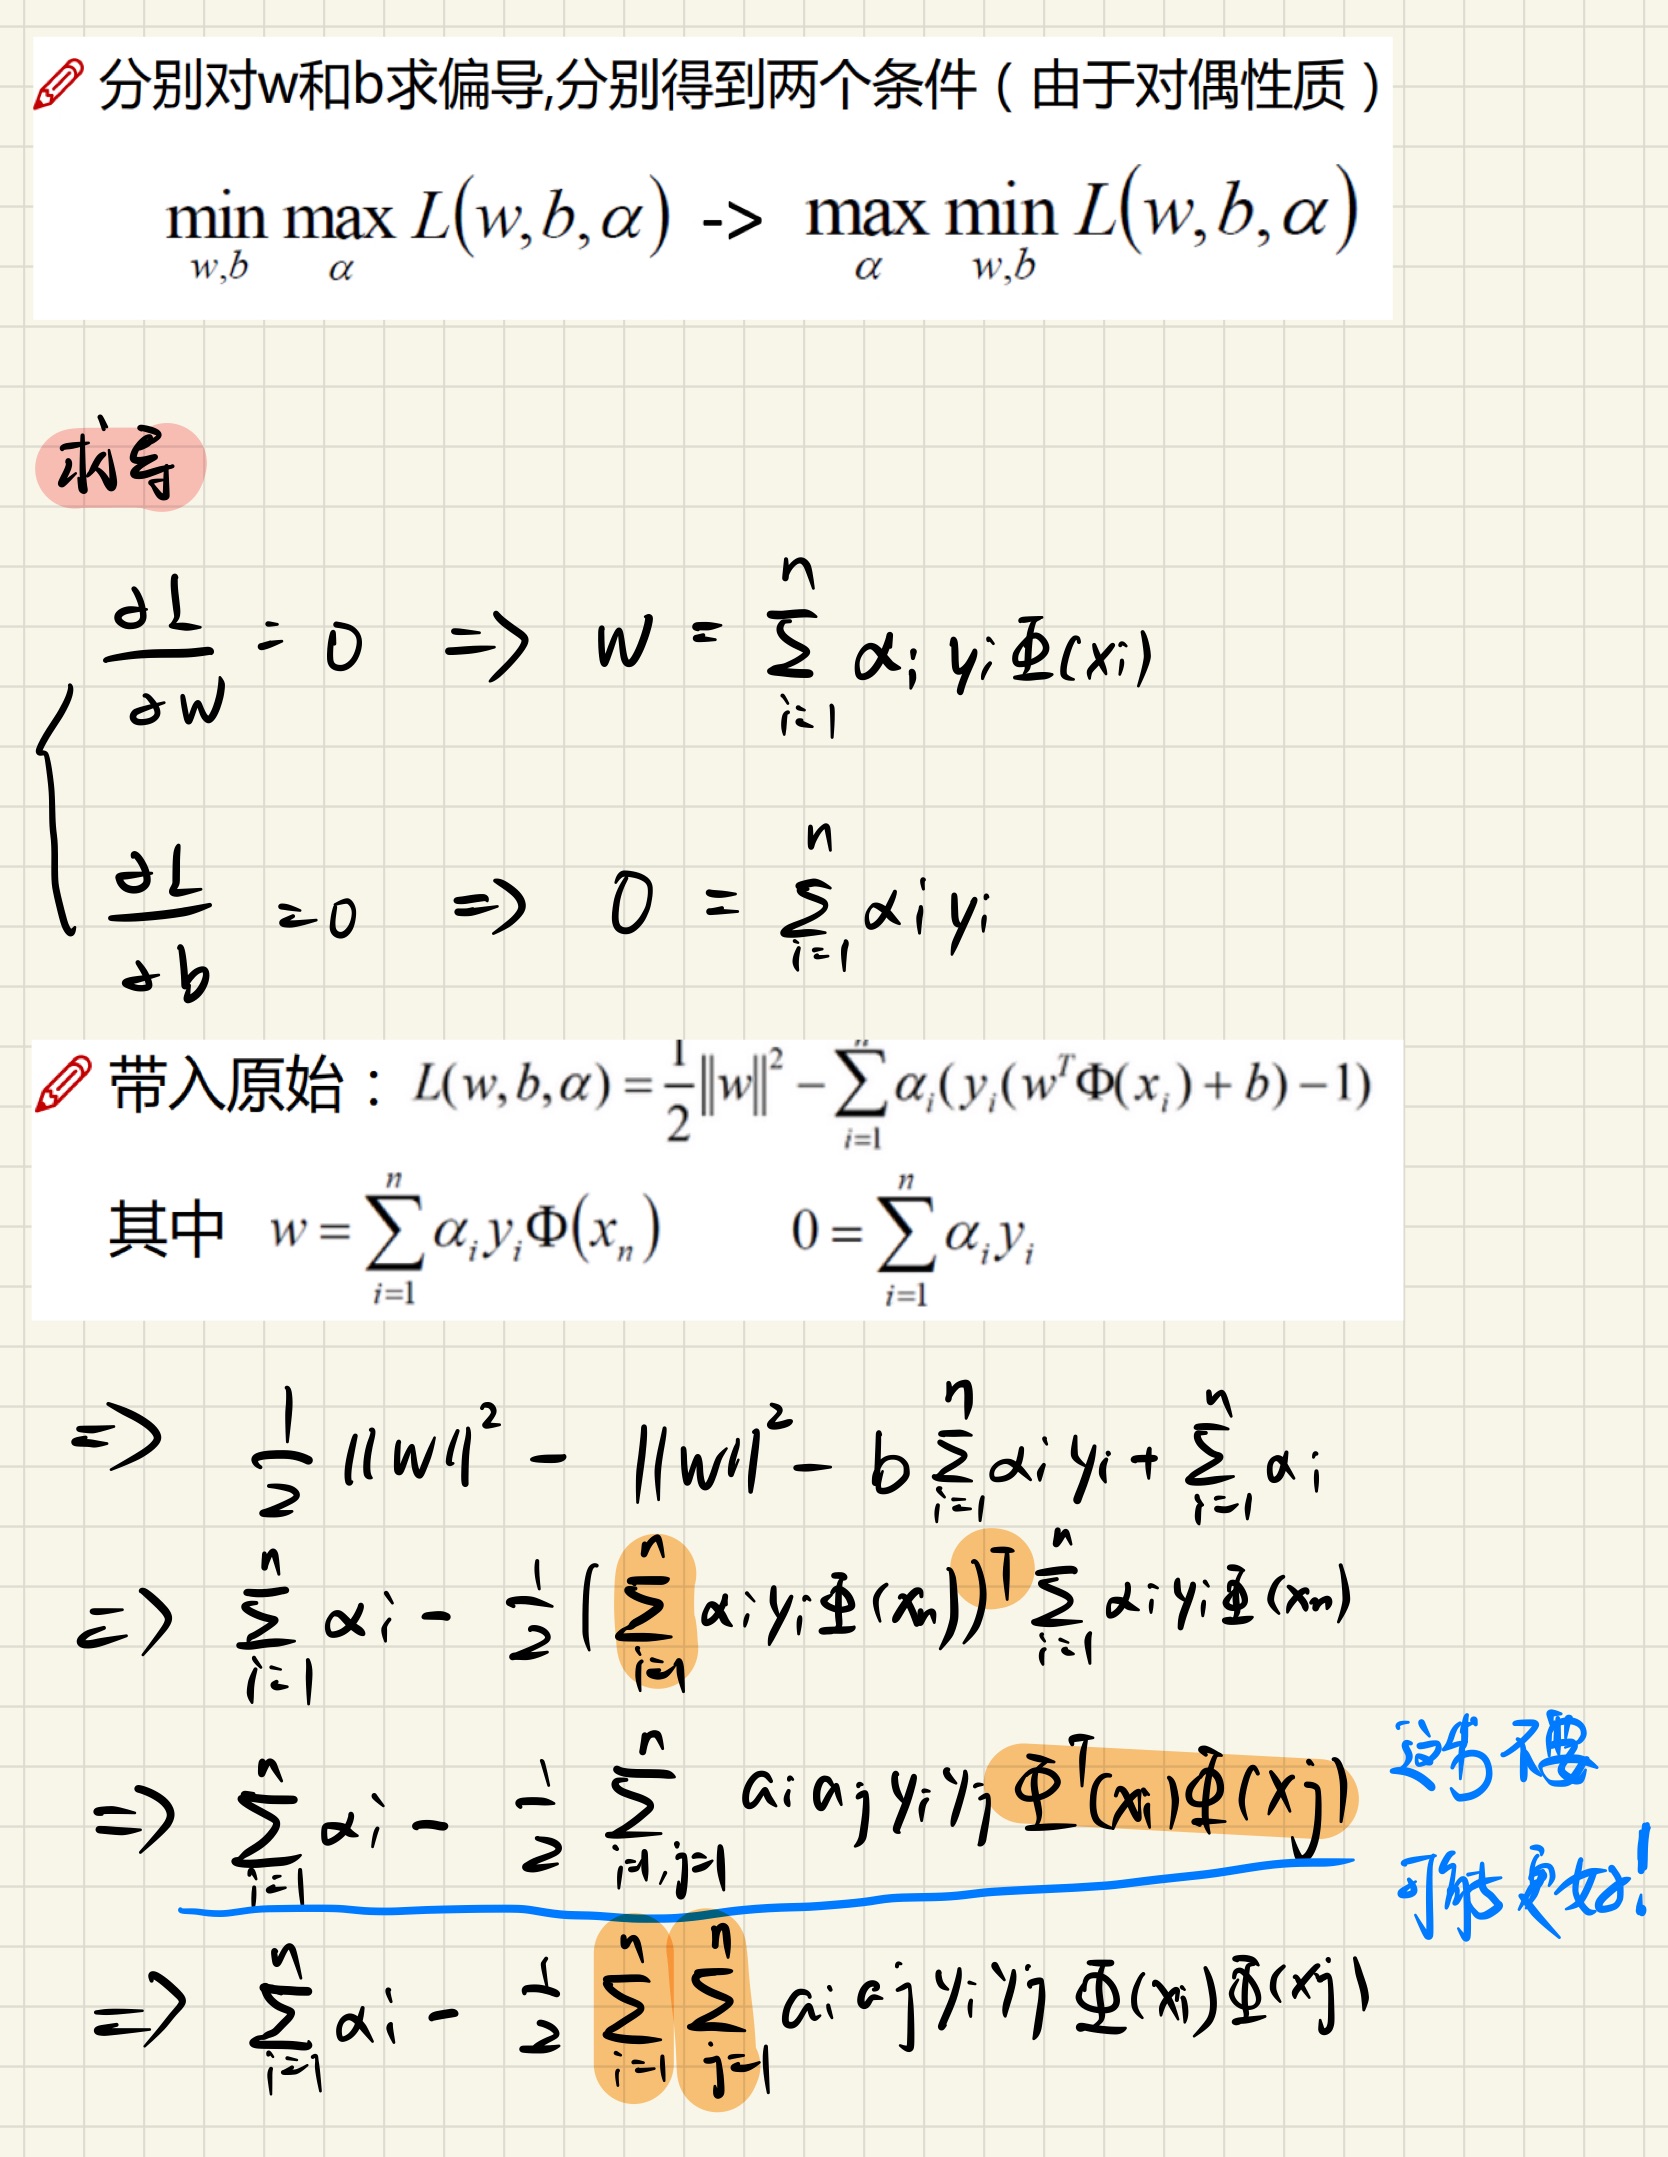 分别对w和b求偏导,分别得到两个条件（由于对偶性质）
min_{w,b} max_{α} L(w,b,α) -> max_{α} min_{w,b} L(w,b,α)
求导
∂L/∂w = 0 => w = ∑_{i=1}^{n} α_i y_i Φ(x_i)
∂L/∂b = 0 => 0 = ∑_{i=1}^{n} α_i y_i
带入原始： L(w,b,α) = 1/2 ||w||² − ∑_{i=1}^{n} α_i(y_i(w^T Φ(x_i) + b) − 1)
其中 w = ∑_{i=1}^{n} α_i y_i Φ(x_n) 0 = ∑_{i=1}^{n} α_i y_i
=> 1/2 ||w||² − ||w||² − b ∑_{i=1}^{n} α_i y_i + ∑_{i=1}^{n} α_i
=> ∑_{i=1}^{n} α_i − 1/2 (∑_{i=1}^{n} α_i y_i Φ(x_n))^T ∑_{i=1}^{n} α_i y_i Φ(x_n)
=> ∑_{i=1}^{n} α_i − 1/2 ∑_{i=1,j=1}^{n} a_i a_j y_i y_j Φ^T(x_i) Φ(x_j)
不要
可能更好!
=> ∑_{i=1}^{n} α_i − 1/2 ∑_{i=1}^{n} ∑_{j=1}^{n} a_i a_j y_i y_j Φ(x_i) Φ(x_j)